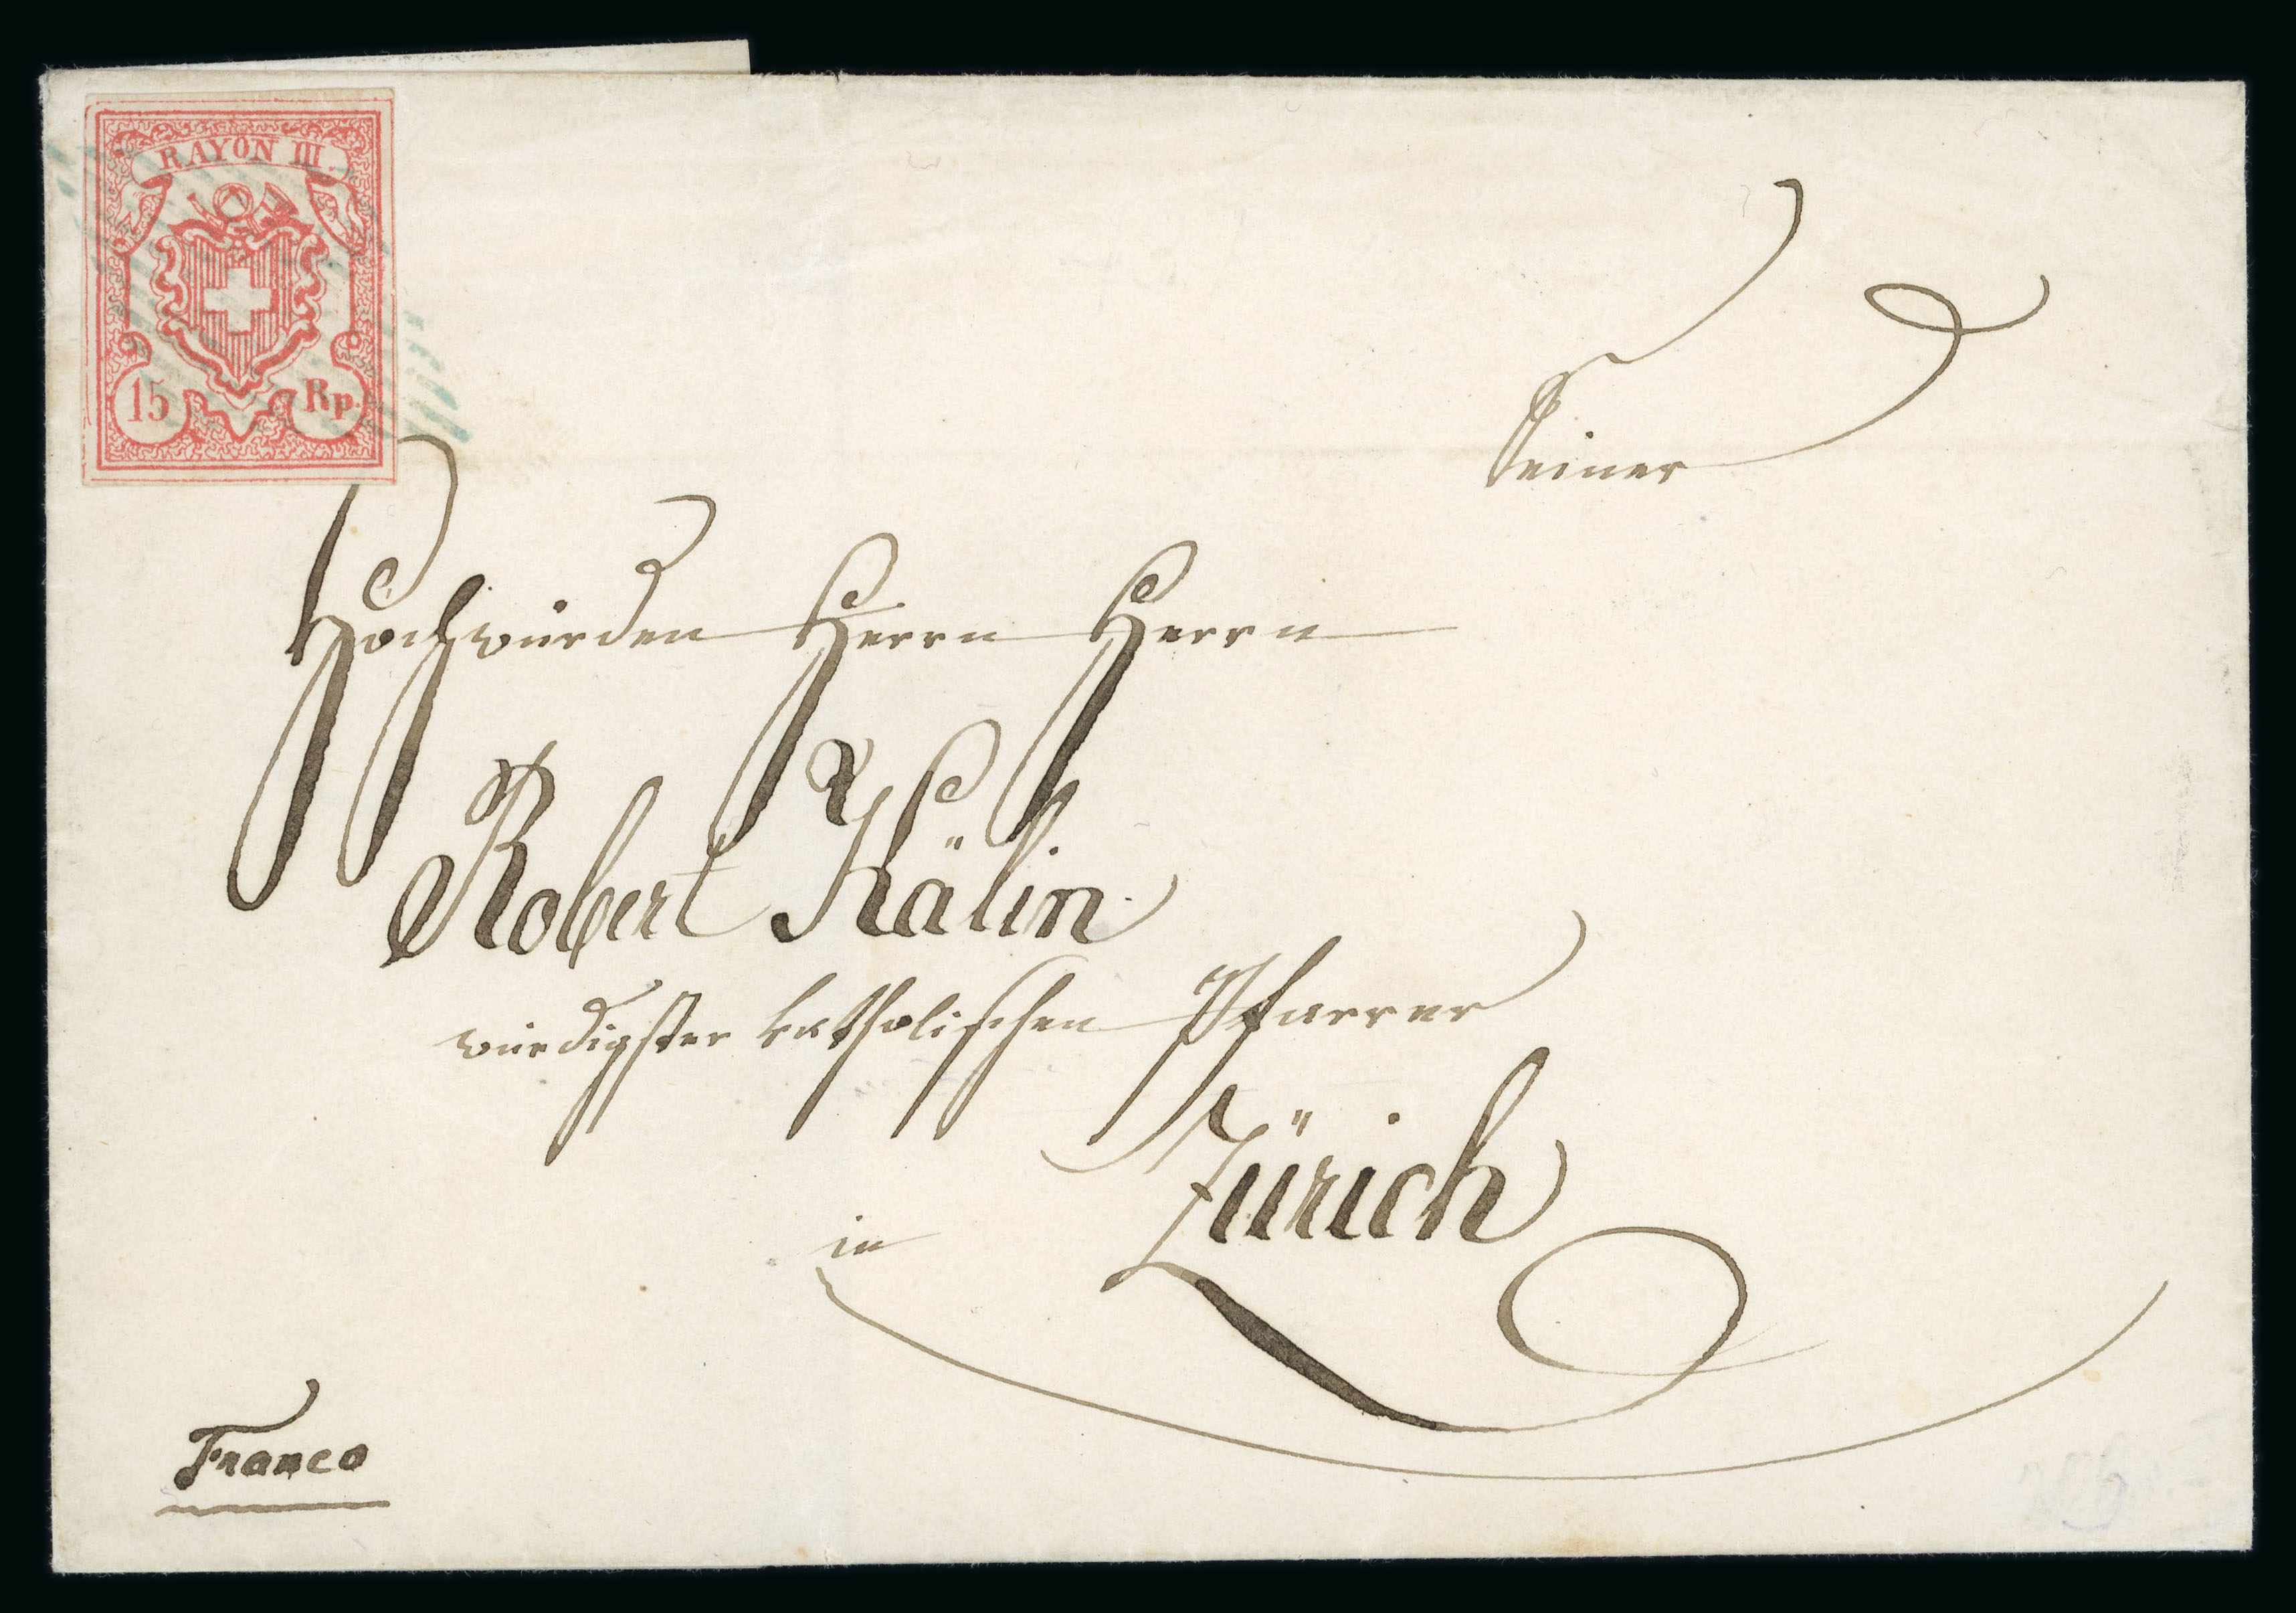 RAYON III
15 Rp.
Seiner
Hochwürden Herrn Herrn
Robert Kälin
würdigster katholischen Pfarrer
in Zürich
Franco